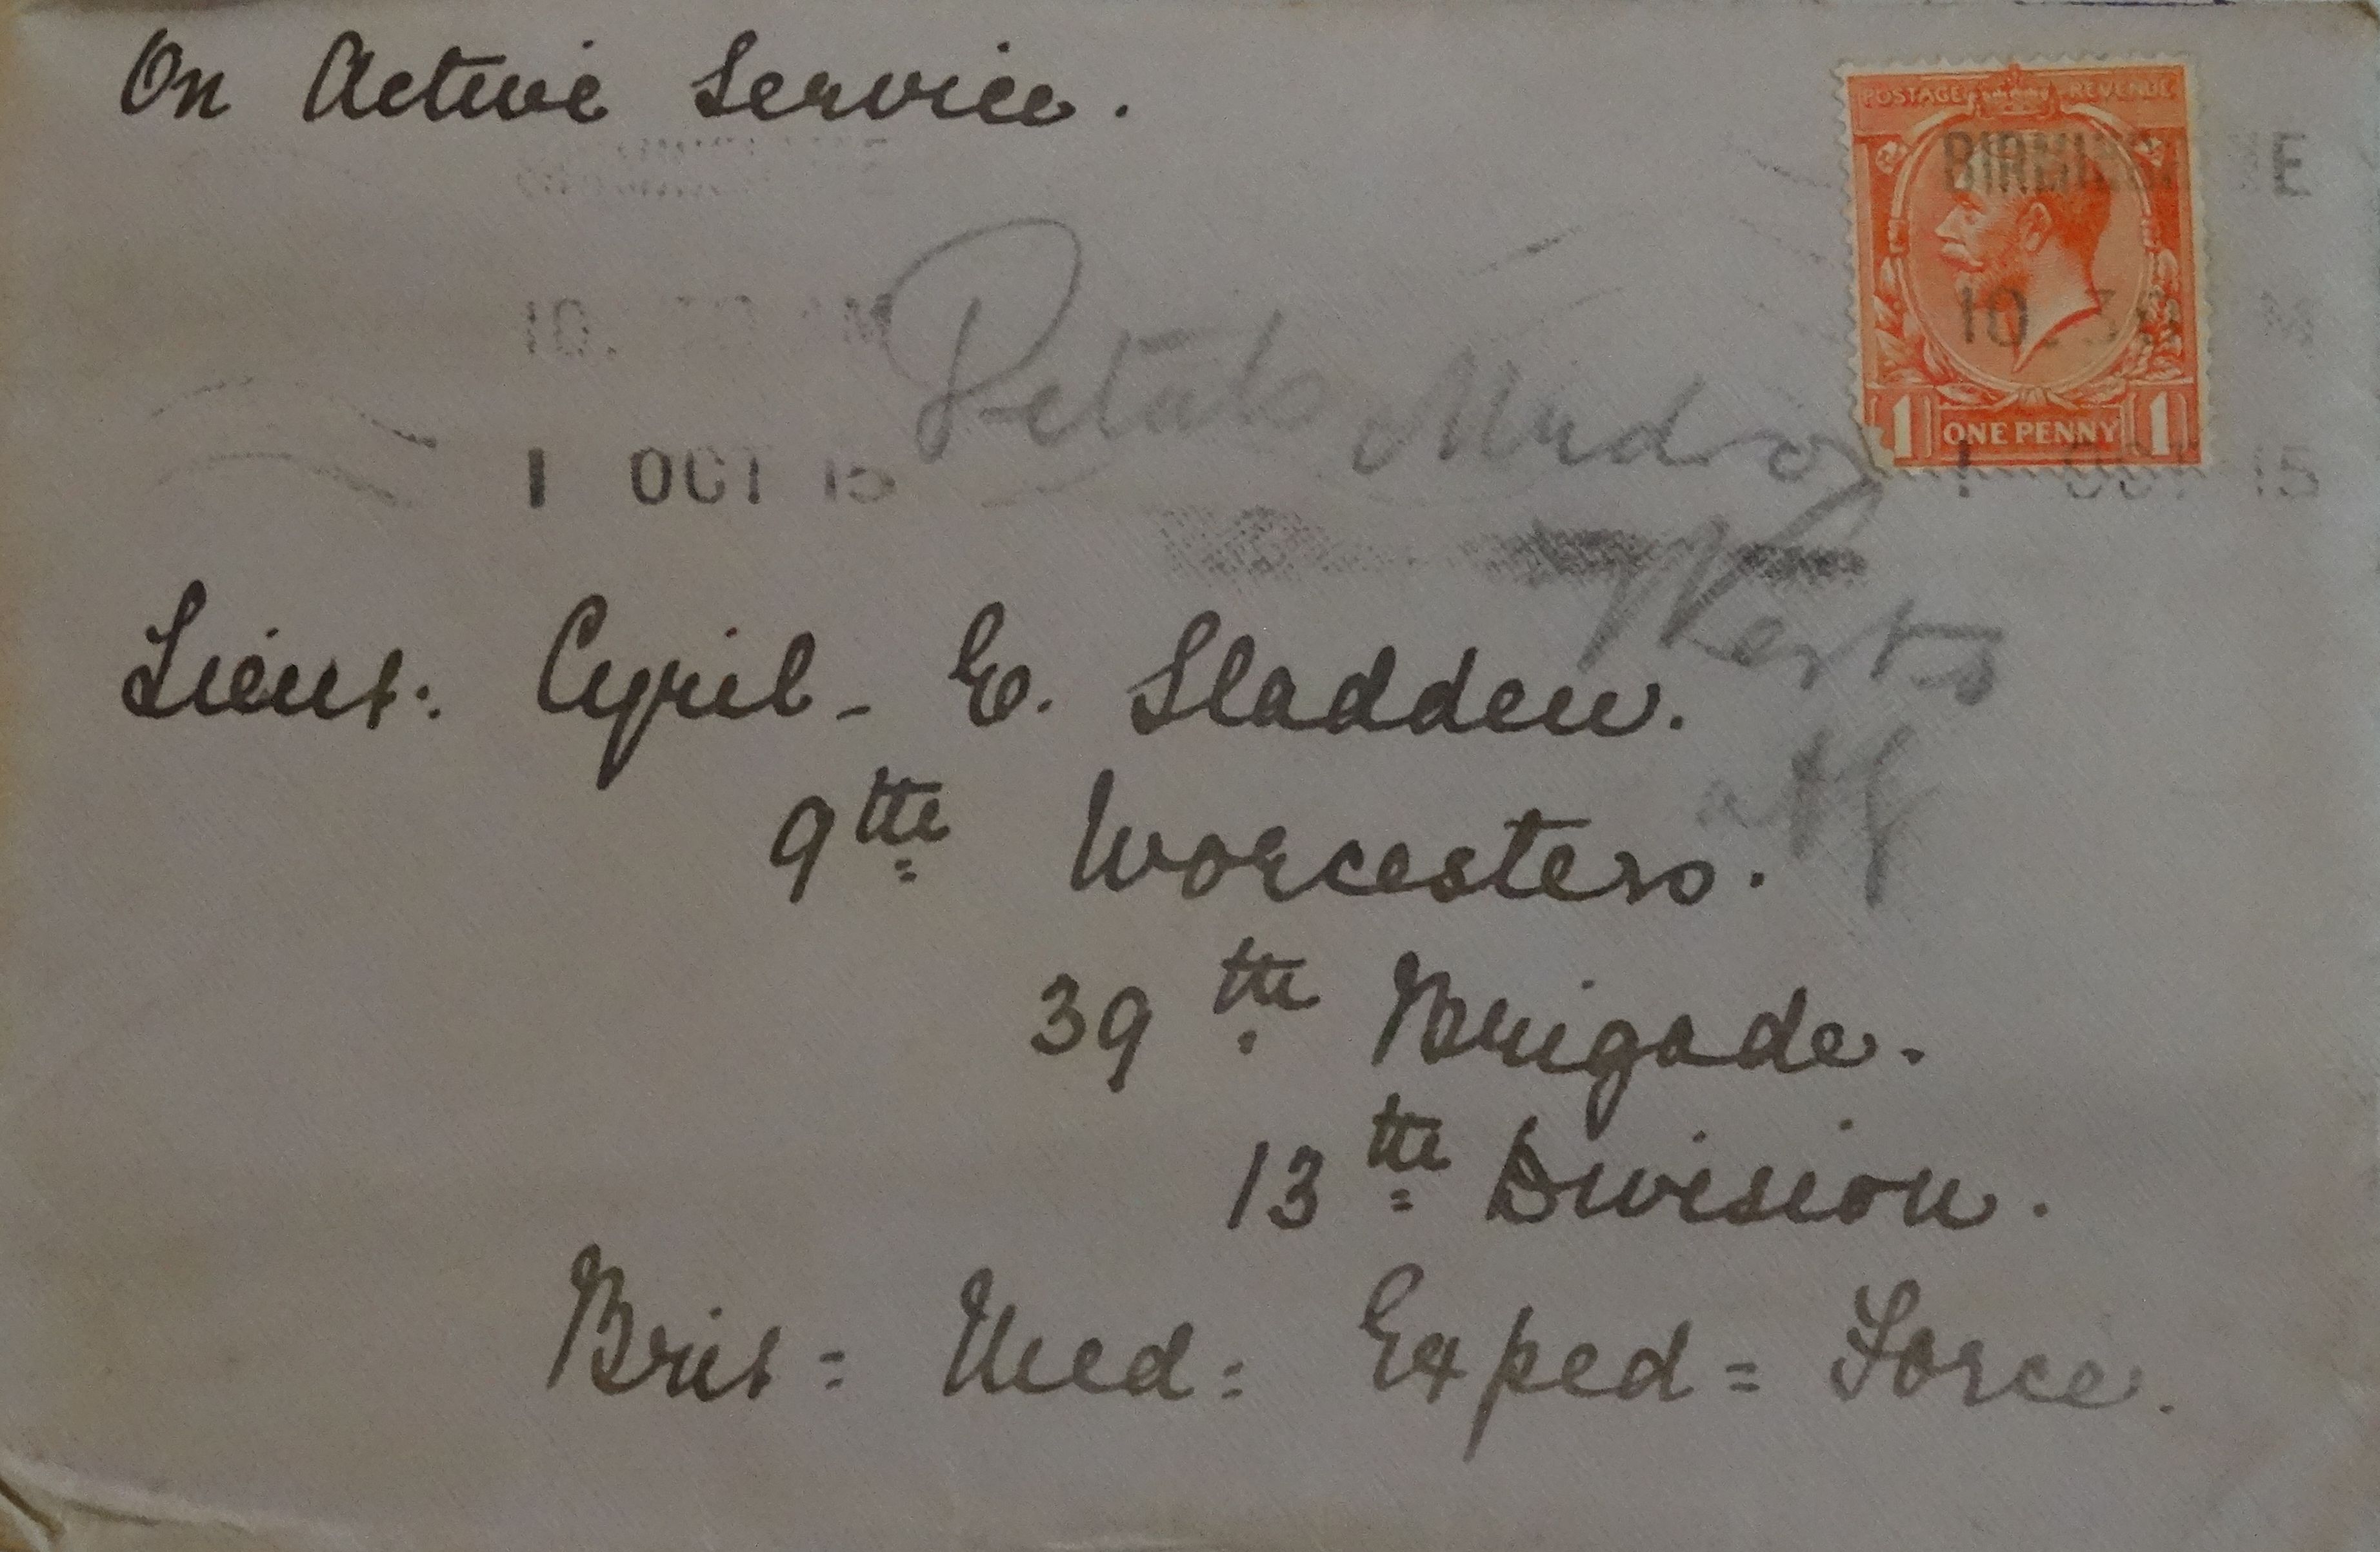 On Active Service.
POSTAGE REVENUE
E
10. 30 AM
10.30 M
1 OCT 15
1 OCT 15
1 ONE PENNY 1
Details Mudros
Lieut: Cyril - E. Sladden.
9th Worcesters.
39th Brigade.
13th Division.
Brit = Med = Exped = Force.